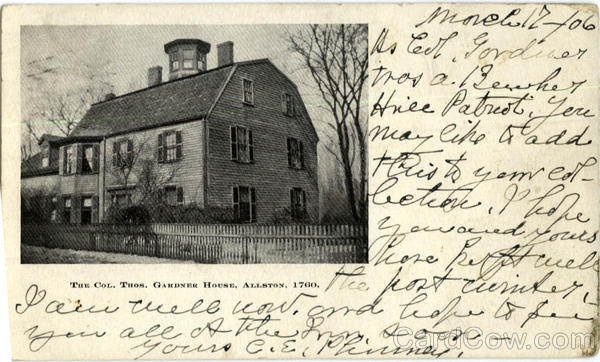 March 17 - 06
As Col. Gardner
was a Bunker
Hill Patriot, you
may like to add
this to your col-
lection. I hope
you and yours
have kept well
THE COL. THOS. GARDNER HOUSE, ALLSTON, 1760.
the past winter,
I am well now, and hope to see
you all at the Inn soon
Yours C. E. Phinney
CardCow.com